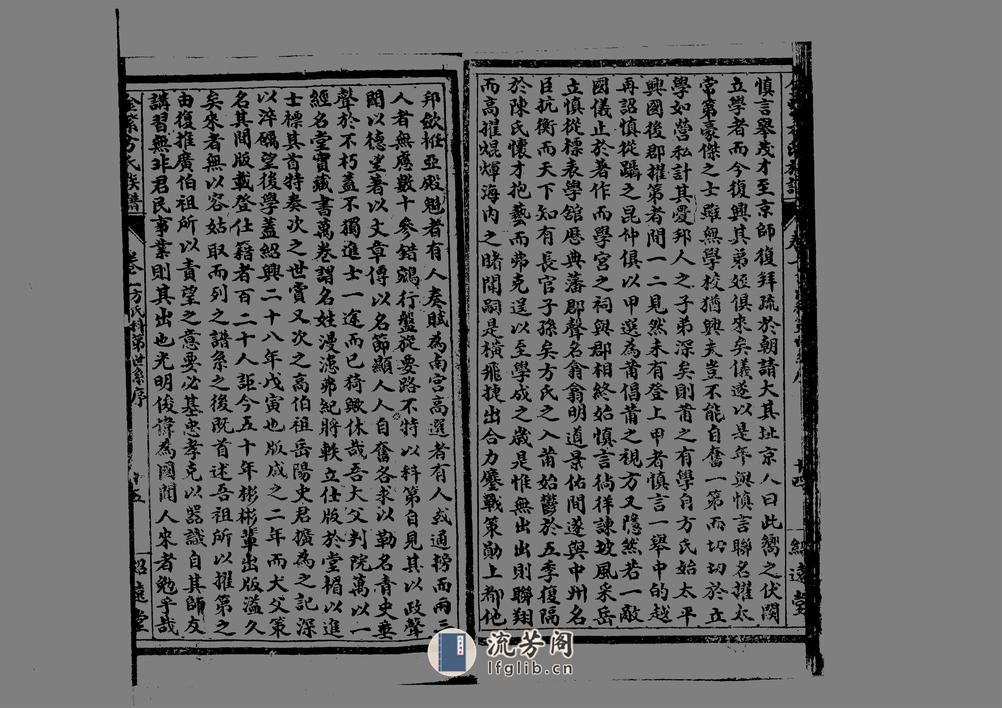 慎言舉茂才至京師復拜疏於朝請大其址京人曰此嚮之伏闕
立學者而今復興其弟姪俱來矣儀遂以是年與慎言聯名擢太
常第豪傑之士雖無學校猶興夫豈不能自奮一第而切切於立
學如營私計其愛邦人之子弟深矣則莆之有學自方氏始太平
興國後郡擢第者間一二見然未有登上甲者慎言一舉中的越
再詔慎從躡之昆仲俱以甲選為莆倡莆之視方又隱然若一敵
國儀止於著作而學宮之祠與郡相終始慎言徜徉諫坡風采岳
立慎從標表學館歷典藩郡聲名翕翕明道景佑間遂與中州名
臣抗衡而天下知有長官子孫矣方氏之入莆始鬱於五季復隔
於陳氏懷才抱藝而弗克逞以至學成之歲是惟無出出則聯翔
而高擢焜煇海內之睹聞嗣是橫飛捷出合力鏖戰策勛上都他
卷
十四
綿遠堂
邦歛衽亞殿魁者有人奏賦為南宮高選者有人或通榜而兩三
人者無應數十參錯鵷行盤踞要路不特以科第自見其以政聲
聞以德望著以文章傳以名節顯人人自奮各求以勒名青史垂
聲於不朽蓋不獨進士一途而已猗歟休哉吾大父判院萬以一
經名堂實藏書萬卷謂名姓漫漶弗紀將軼立仕版於堂楣以進
士標其首特奏次之世賞又次之高伯祖岳陽史君擴為之記深
以淬礪望後學蓋紹興二十八年戊寅也版成之二年而大父策
名其間版載登仕籍者百二十人詎今五十年彬彬輩出版溢久
矣來者無以容姑取而列之譜系之後既首述吾祖所以擢第之
由復推廣伯祖所以責望之意要必基忠孝克以器識自其師友
講習無非君民事業則其出也光明俊偉為國聞人來者勉乎哉
金紫方氏族譜
卷一方氏科第世系序
十五
紹遠堂
流芳阁
lfglib.cn